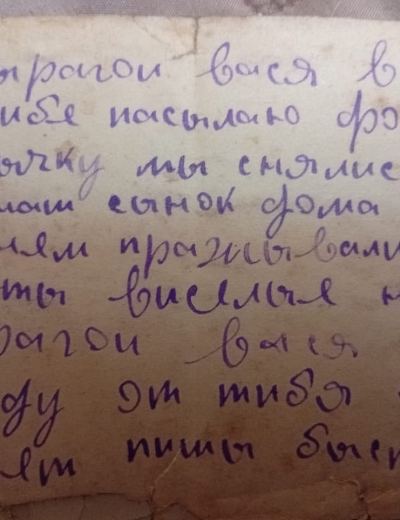 ырагои вася в
ибе пасылаю фо
ычку мы снялис
лаш сынок дома
ням пражывали
ты виселые н
рагои вася
ду эт тибя
ет пишы быс